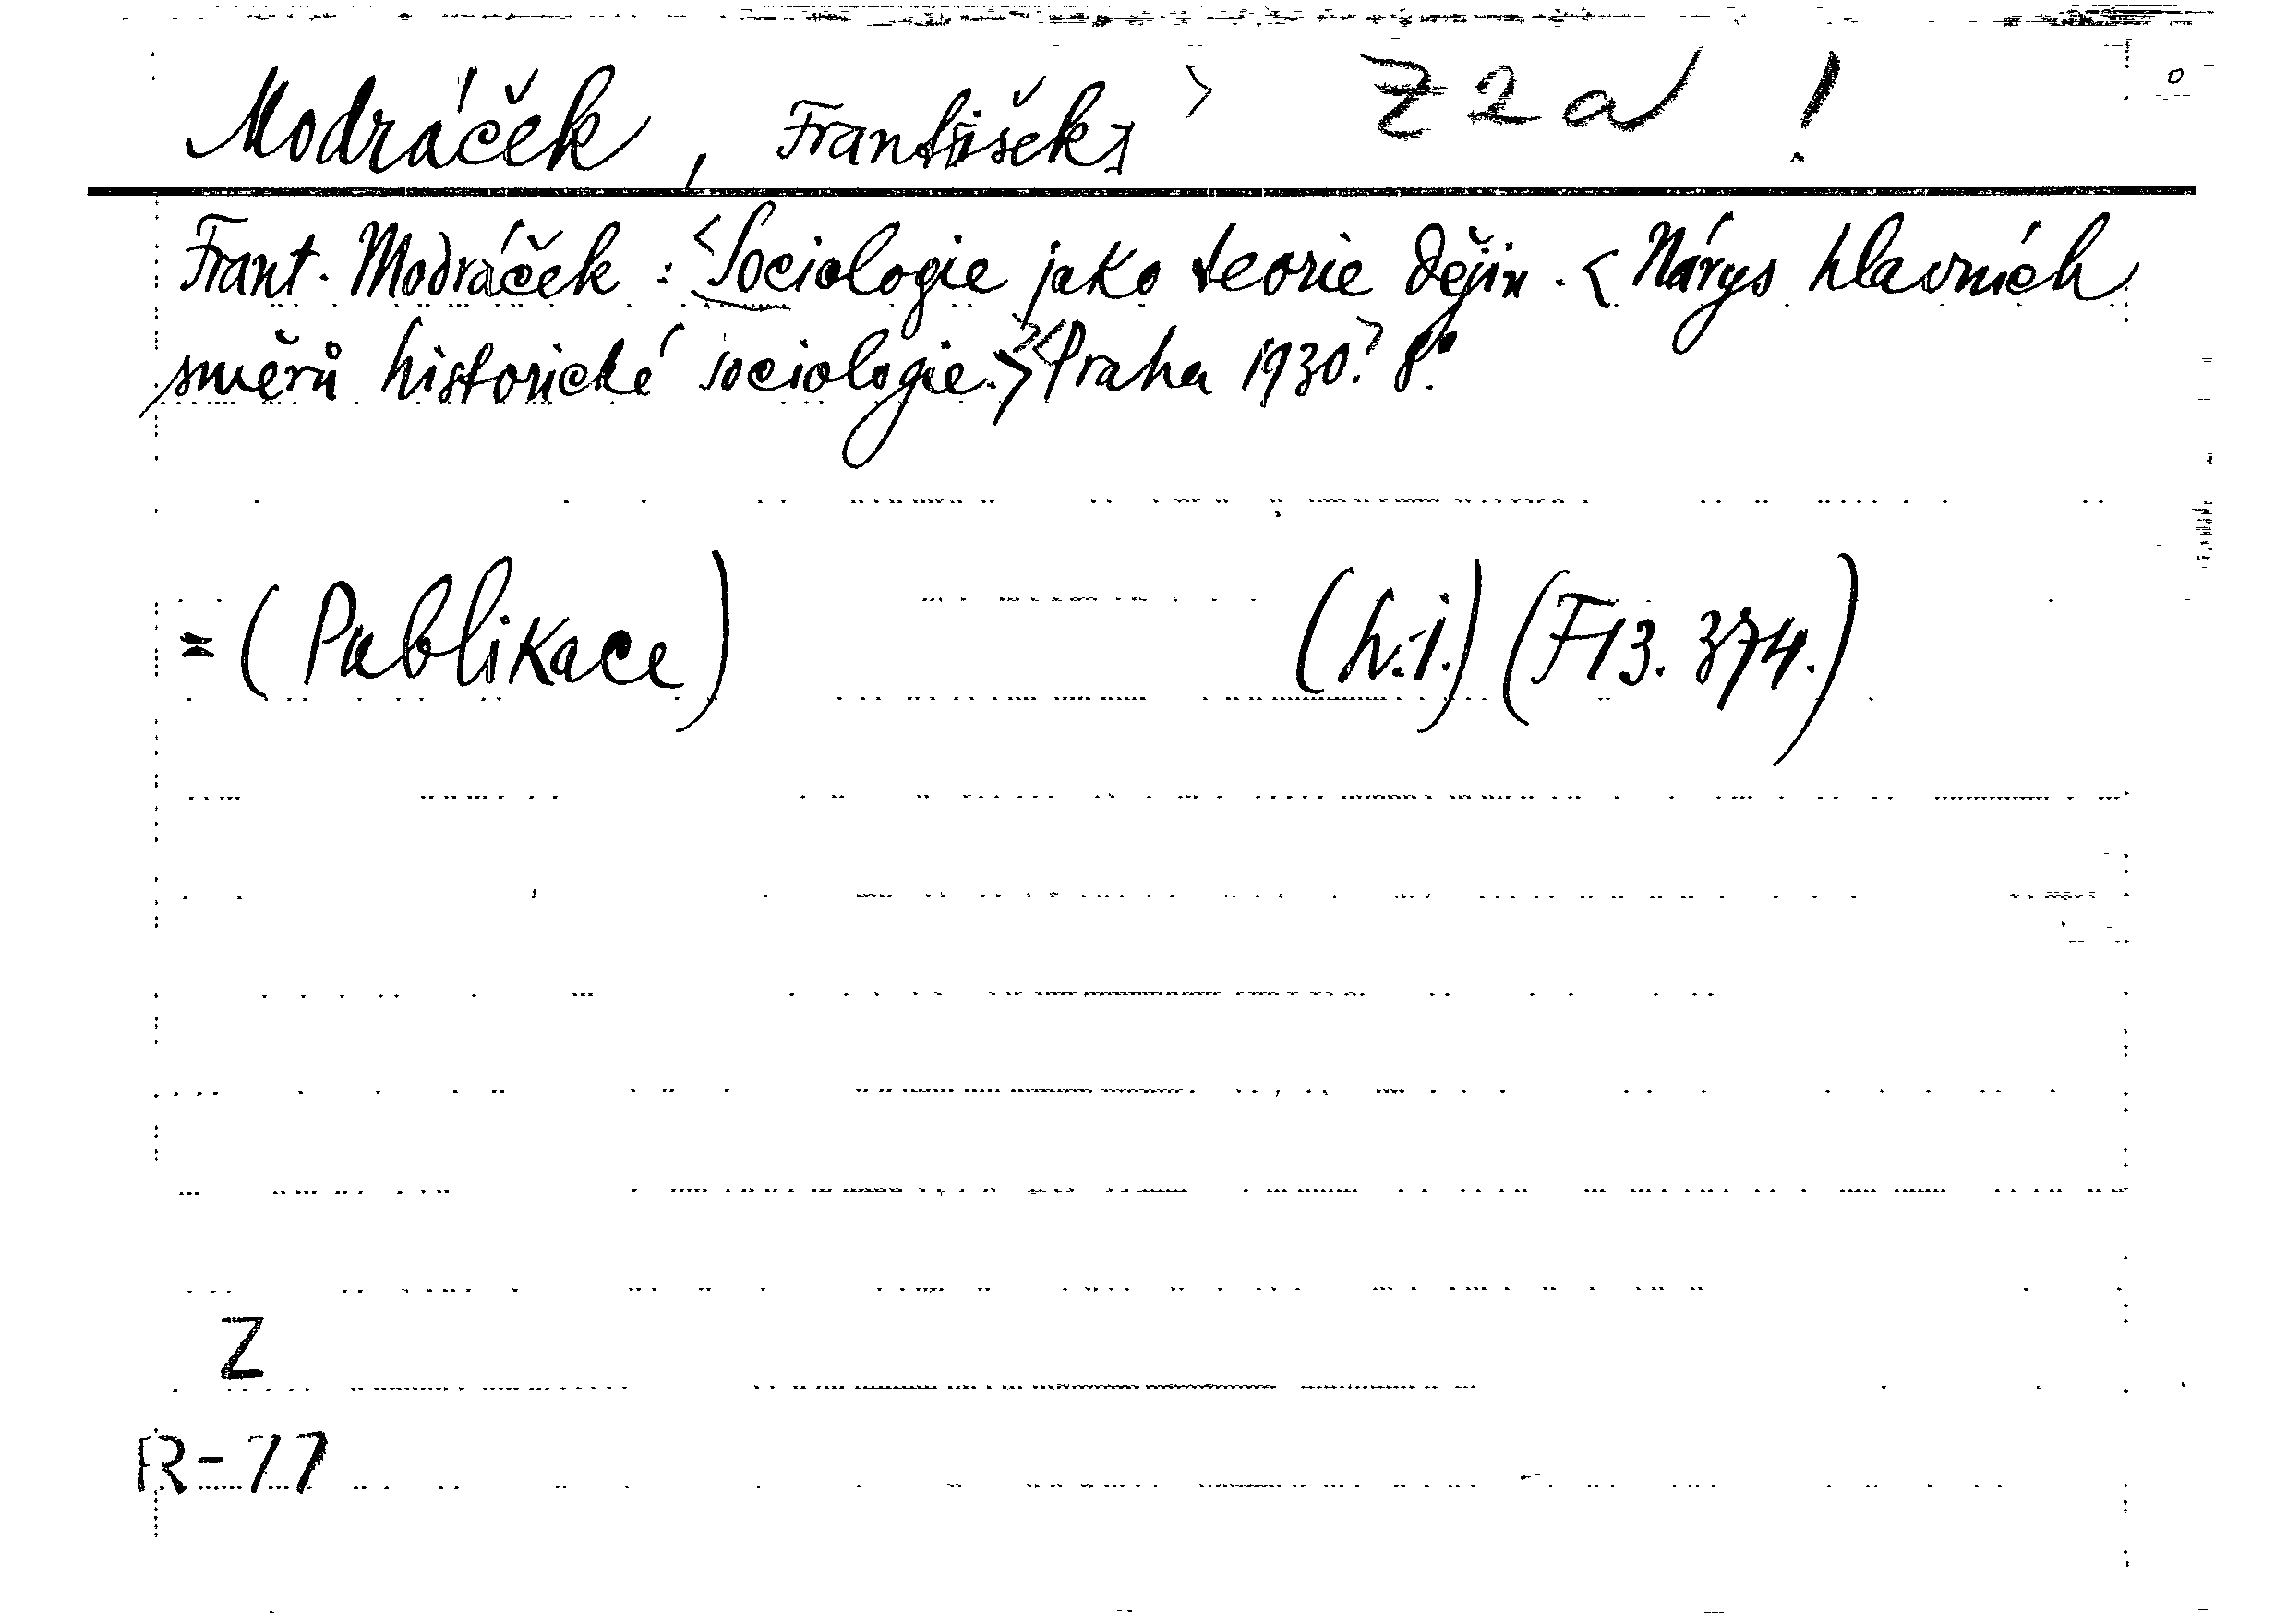 Modráček, František, > Z 2 a !
Frant. Modráček : <Sociologie jako teorie dějin. < Nárys hlavních
směrů historické sociologie.>> <Praha 1930.> 8°.
= (Publikace) (h.i.) (F 13. 374.)
Z
R-77